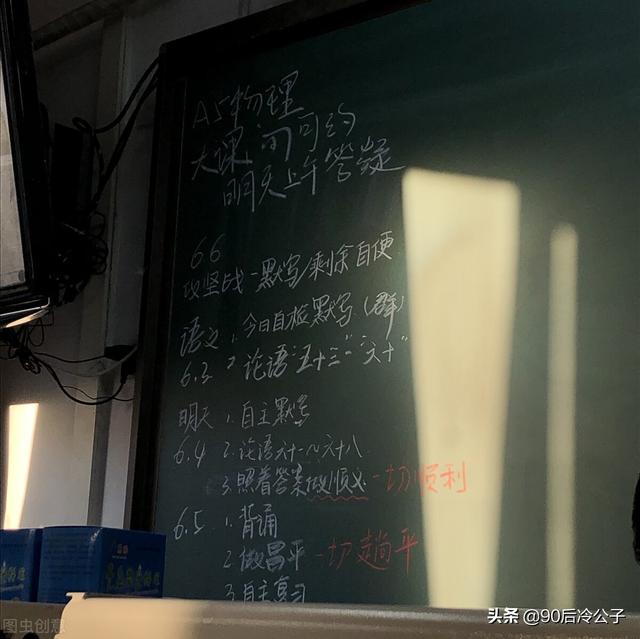 A5物理
大课间可约
明天上午答疑
6.6
攻坚战-默写/剩余自便
语文 1.今日自检默写(群)
6.3 2.论语"五十三"-"六十"
明天 1.自主默写
6.4 2.论语六十一~六十八
3.照着答案做顺义 一切顺利
6.5 1.背诵
2.做昌平 一切趟平
3.自主复习
图虫创意
头条 @90后冷公子